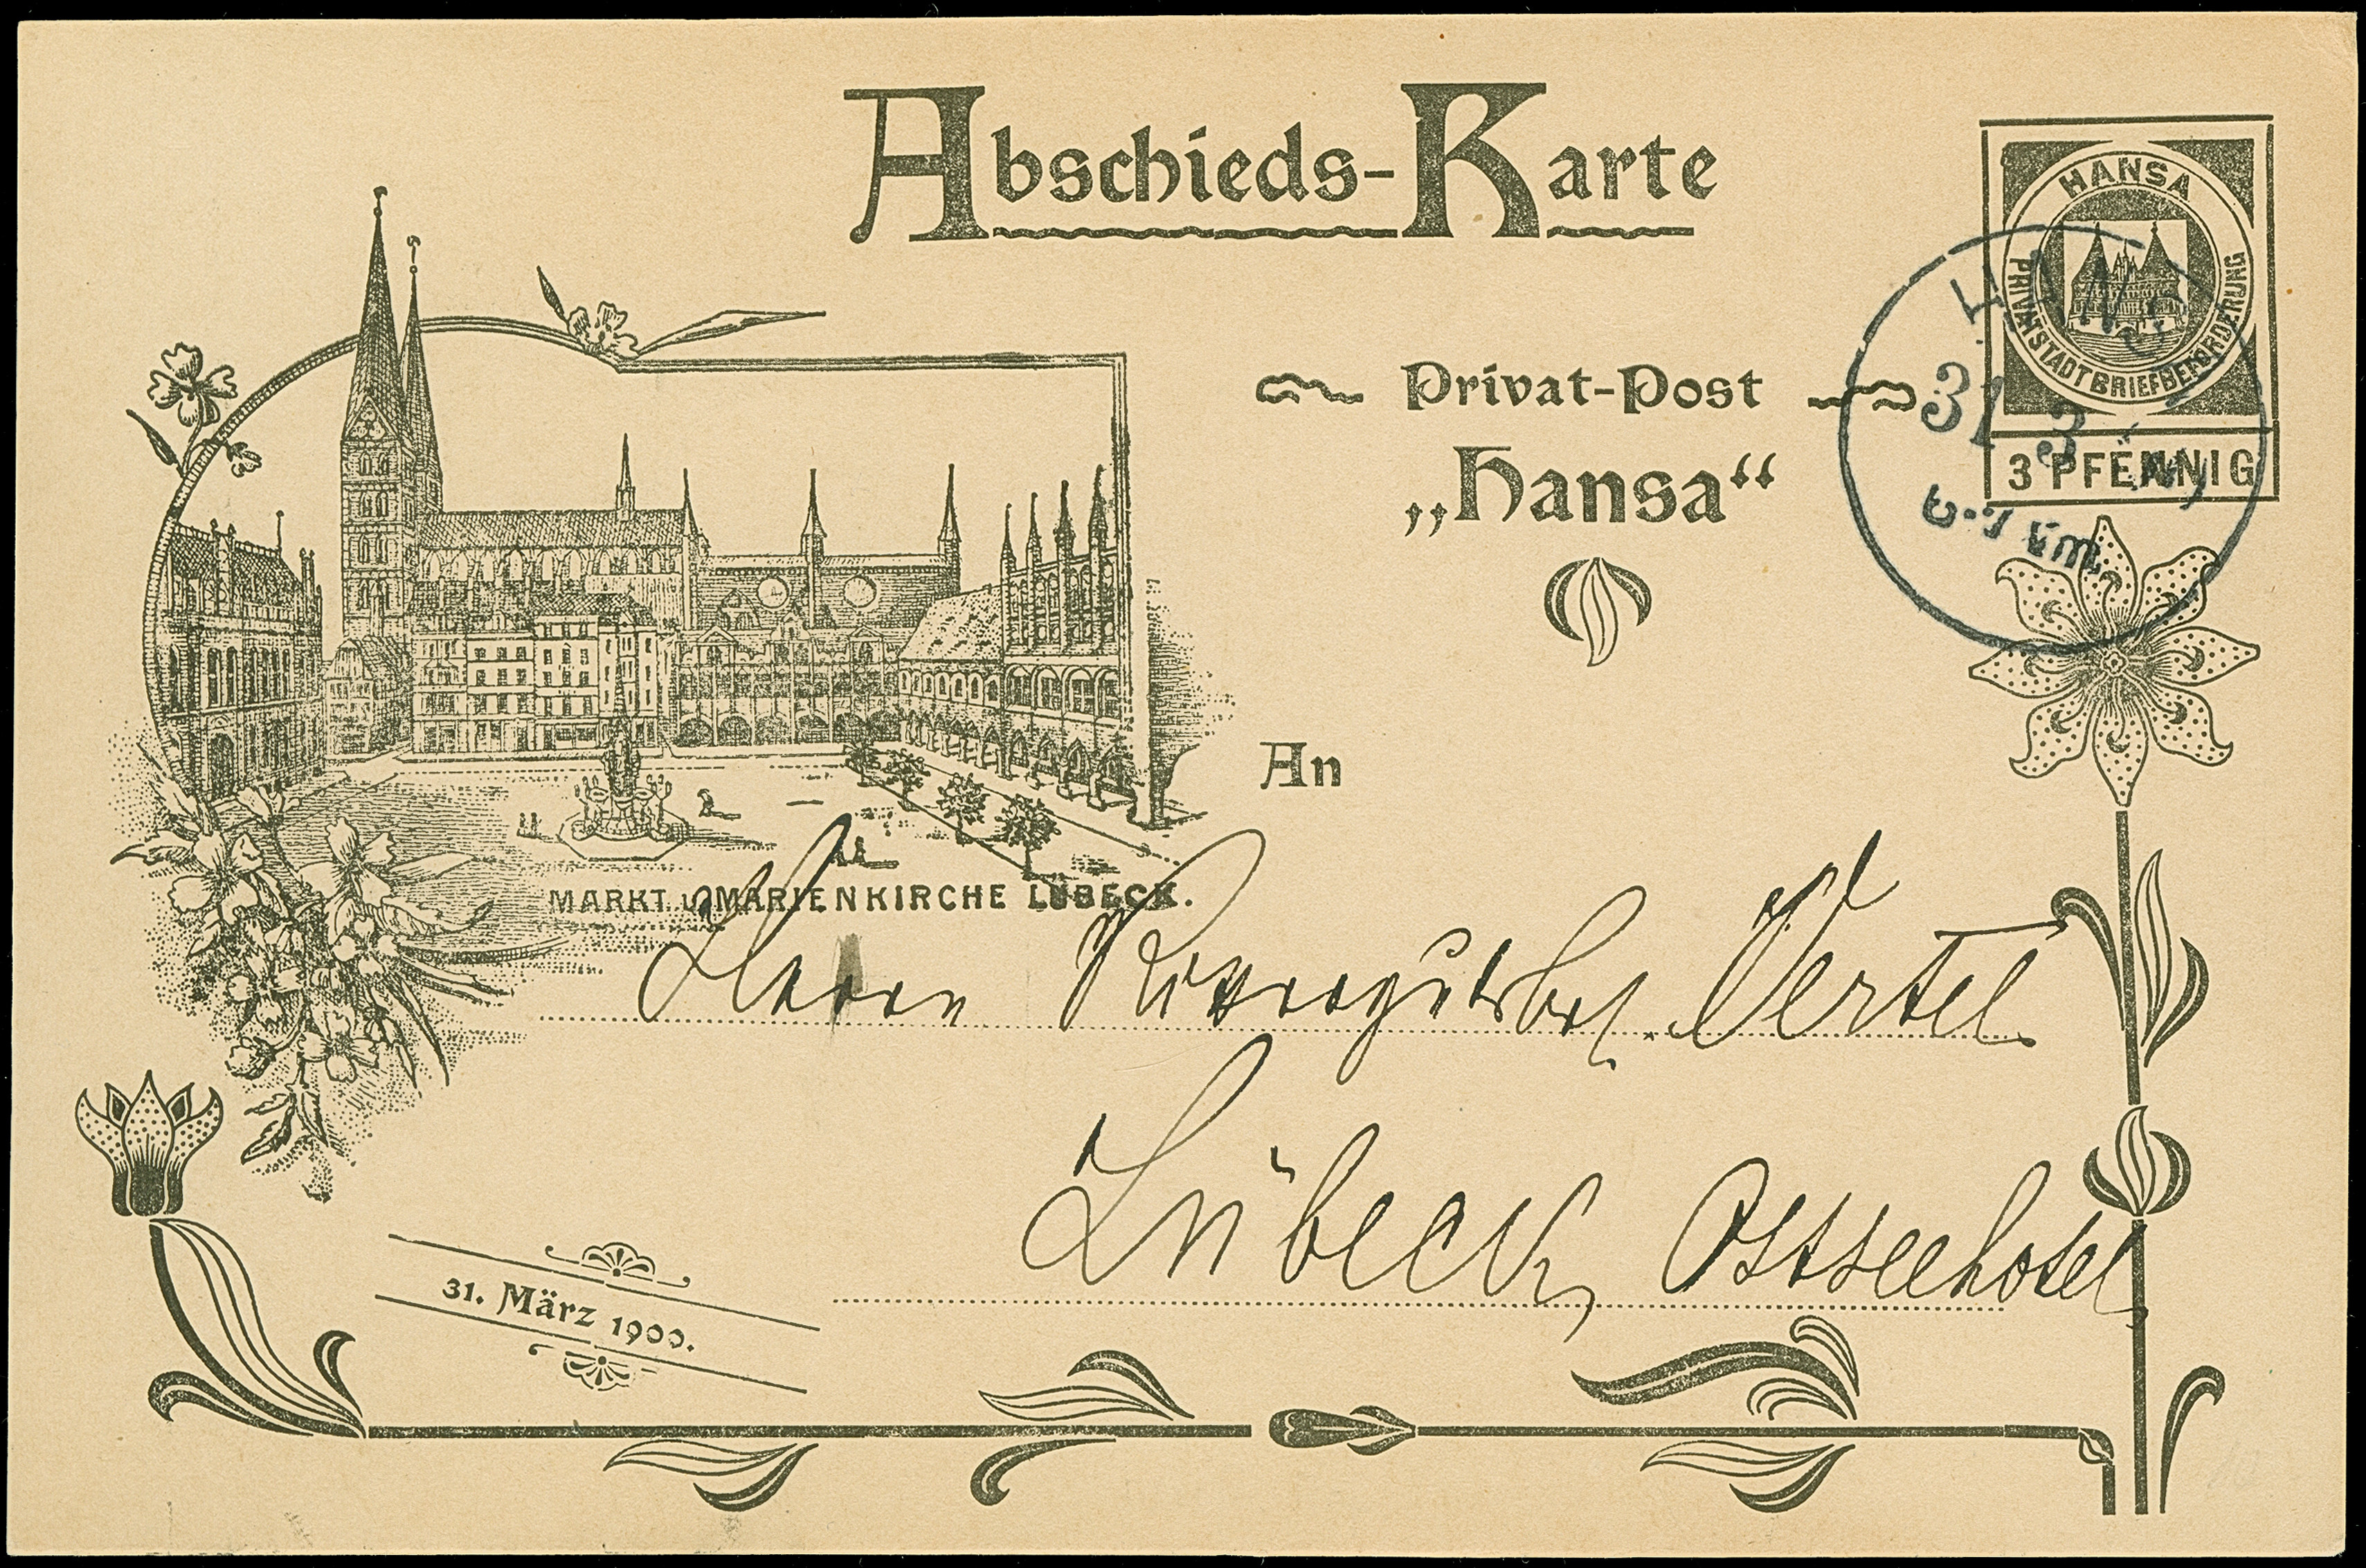 Abschieds-Karte
HANSA
PRIVATSTADTBRIEFBEFÖRDERUNG
3 PFENNIG
Privat-Post
„Hansa“
31 3
An
MARKT u MARIENKIRCHE LÜBECK.
Herrn Oertel
Lübeck, Ostseehotel
31. März 1900.